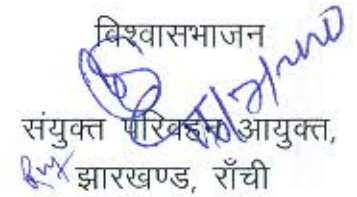 विश्वासभाजन
संयुक्त परिवहन आयुक्त,
झारखण्ड, राँची